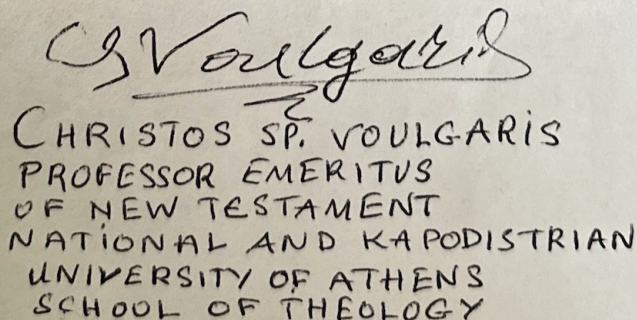 Ch Voulgaris
CHRISTOS SP. VOULGARIS
PROFESSOR EMERITUS
OF NEW TESTAMENT
NATIONAL AND KAPODISTRIAN
UNIVERSITY OF ATHENS
SCHOOL OF THEOLOGY